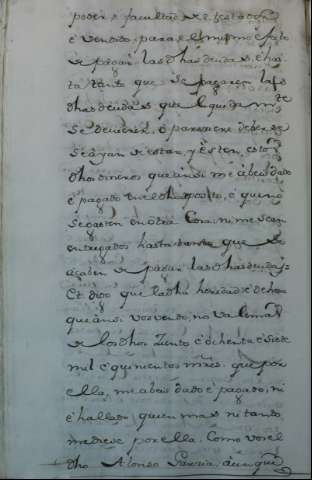 poder e facultad
e vendido para el mismo efeto
de pagar las dhas deudas, e has
ta tanto que se paguen las
dhas deudas que liquidam.te
se devieren, o pareciere deverse
se ayan de estar, y esten, estos
dhos dineros que ansi me abeis dado
e pagado en el dho depossito, e que no
se gasten en otra cosa, ni me sean
entregados hasta tanto que se
acaben de pagar las dhas deudas;
Et digo que la dha heredad de
que ansi vos vendo, no vale mas
de los dhos ziento e ochenta e siete
mil e quinientos mrs. que por
ella, me abeis dado e pagado, ni
e hallado quien mas ni tanto
me diese por ella. Como vos el
dho Alonso Garcia, aunque